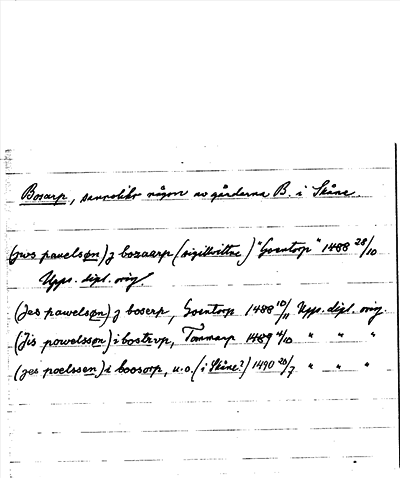 Bosarp, sannolikt någon av gårdarna B. i Skåne.
(jws pauelsøn) j bozaarp (sigillvittne) "Goentorp" 1488 28/10
Upps. dipl. orig.
(Jes pawelsøn) j boserp, Goentorp 1488 10/11 Upps. dipl. orig.
(Jis powelsson) i bostrup, Tommarp 1489 4/10 " " "
(jes poelssen) i boosorp, u.o. (i Skåne?) 1490 20/7 " " "